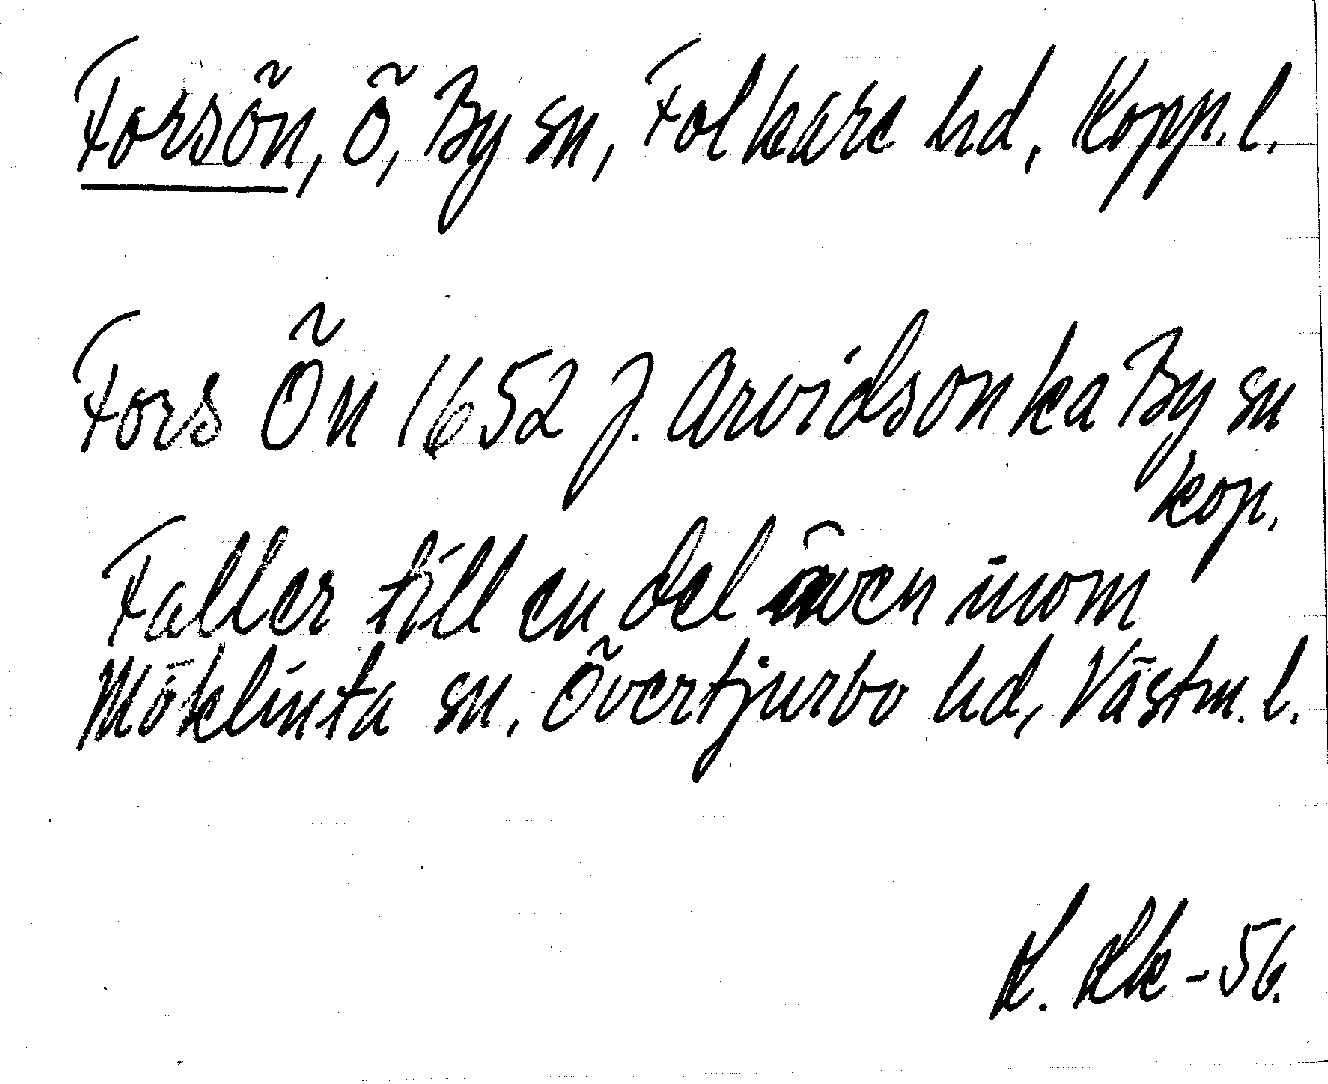 Forsön, Ö, By sn, Folkare hd, Kopp. l.
Fors Ön 1652 J. Arvidson ka By sn
kop.
Faller till en del även inom
Möklinta sn, Övertjurbo hd, Västm. l.
-56.